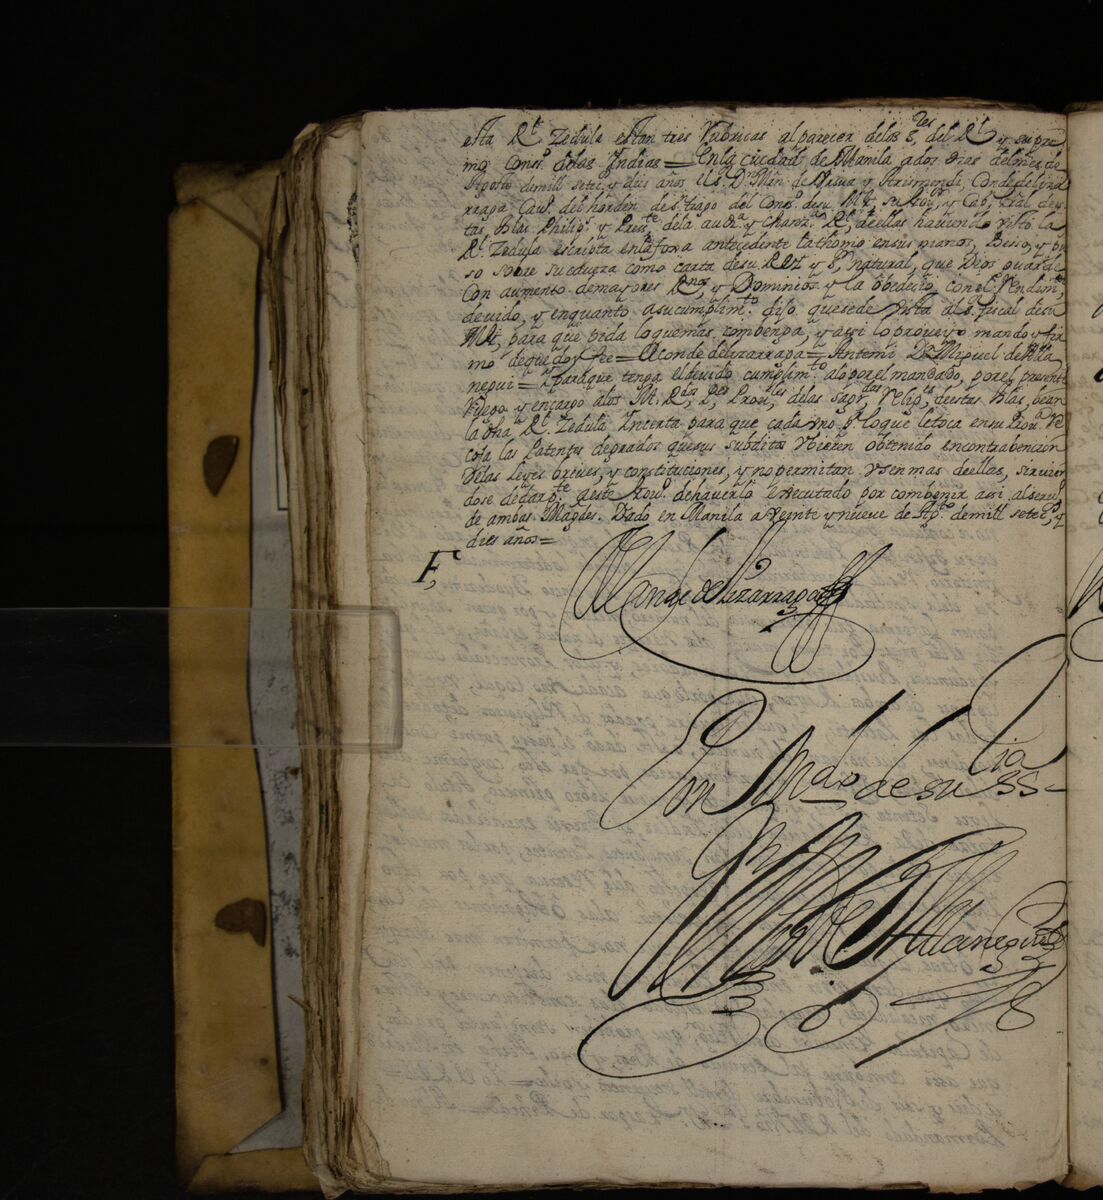 esta Rl. Zedula estan tres Rubricas al parecer delos Ses. del Rl. y supre
mo Conso. delas Yndias = En la ciudad de Manila ados dias del mes de
Agosto demill setezs. y dies años el Sr. Dn. Min. de Ursua y Arismendi, Conde de liza
rraga Cavo. del horden de Stiago del Conso. de su Md. su Govr. y Cap. Gral des
tas Yslas Philips. y Preste. dela auda. y Chanza. Rl. de ellas haviendo visto la
Rl. Zedula escripta enla foxa antecedente la thomo en sus manos, Beso, y pu
so sobre su cavesa como carta de su Rey y Sr. natural, que Dios guarde
Con aumento de mayores Rnos. y Dominios y la obedecio con el Rendimto.
devido, y en quanto a su cumplimto. dijo que se de vista al Sr. fiscal de su
Md. para que pida lo que mas combenga, y assi lo proveyo mando y fir
mo de que doy fee = El conde de lizarraga = Ante mi Dn. Miguel de Alla
negui = Y para que tenga el devido cumplimto. a lo por el mandado, por el presente
Ruego y encargo alos M. Rdos. Pes. Provles. delas sagrdas. Religes. de estas Yslas, bean
la dha Rl. Zedula Incerta para que cada uno pr. lo que le toca en su Prova. Re
coja las Patentes de grados que sus subditos Ubieren obtenido en contrabencion
De las Leyes breves, y constituciones, y no permitan Usen mas de ellas, sirvien
dose de dar pte. a este Govo. de haverlo executado por combenir assi al servo.
de ambas Magdes. Dado en Manila a veinte y nueve de Agto. de mill setezs. y
dies años =
F,
El Conde de Lizarraga
Por Mdo. de su Sria
Dn. Migl. de Allanegui